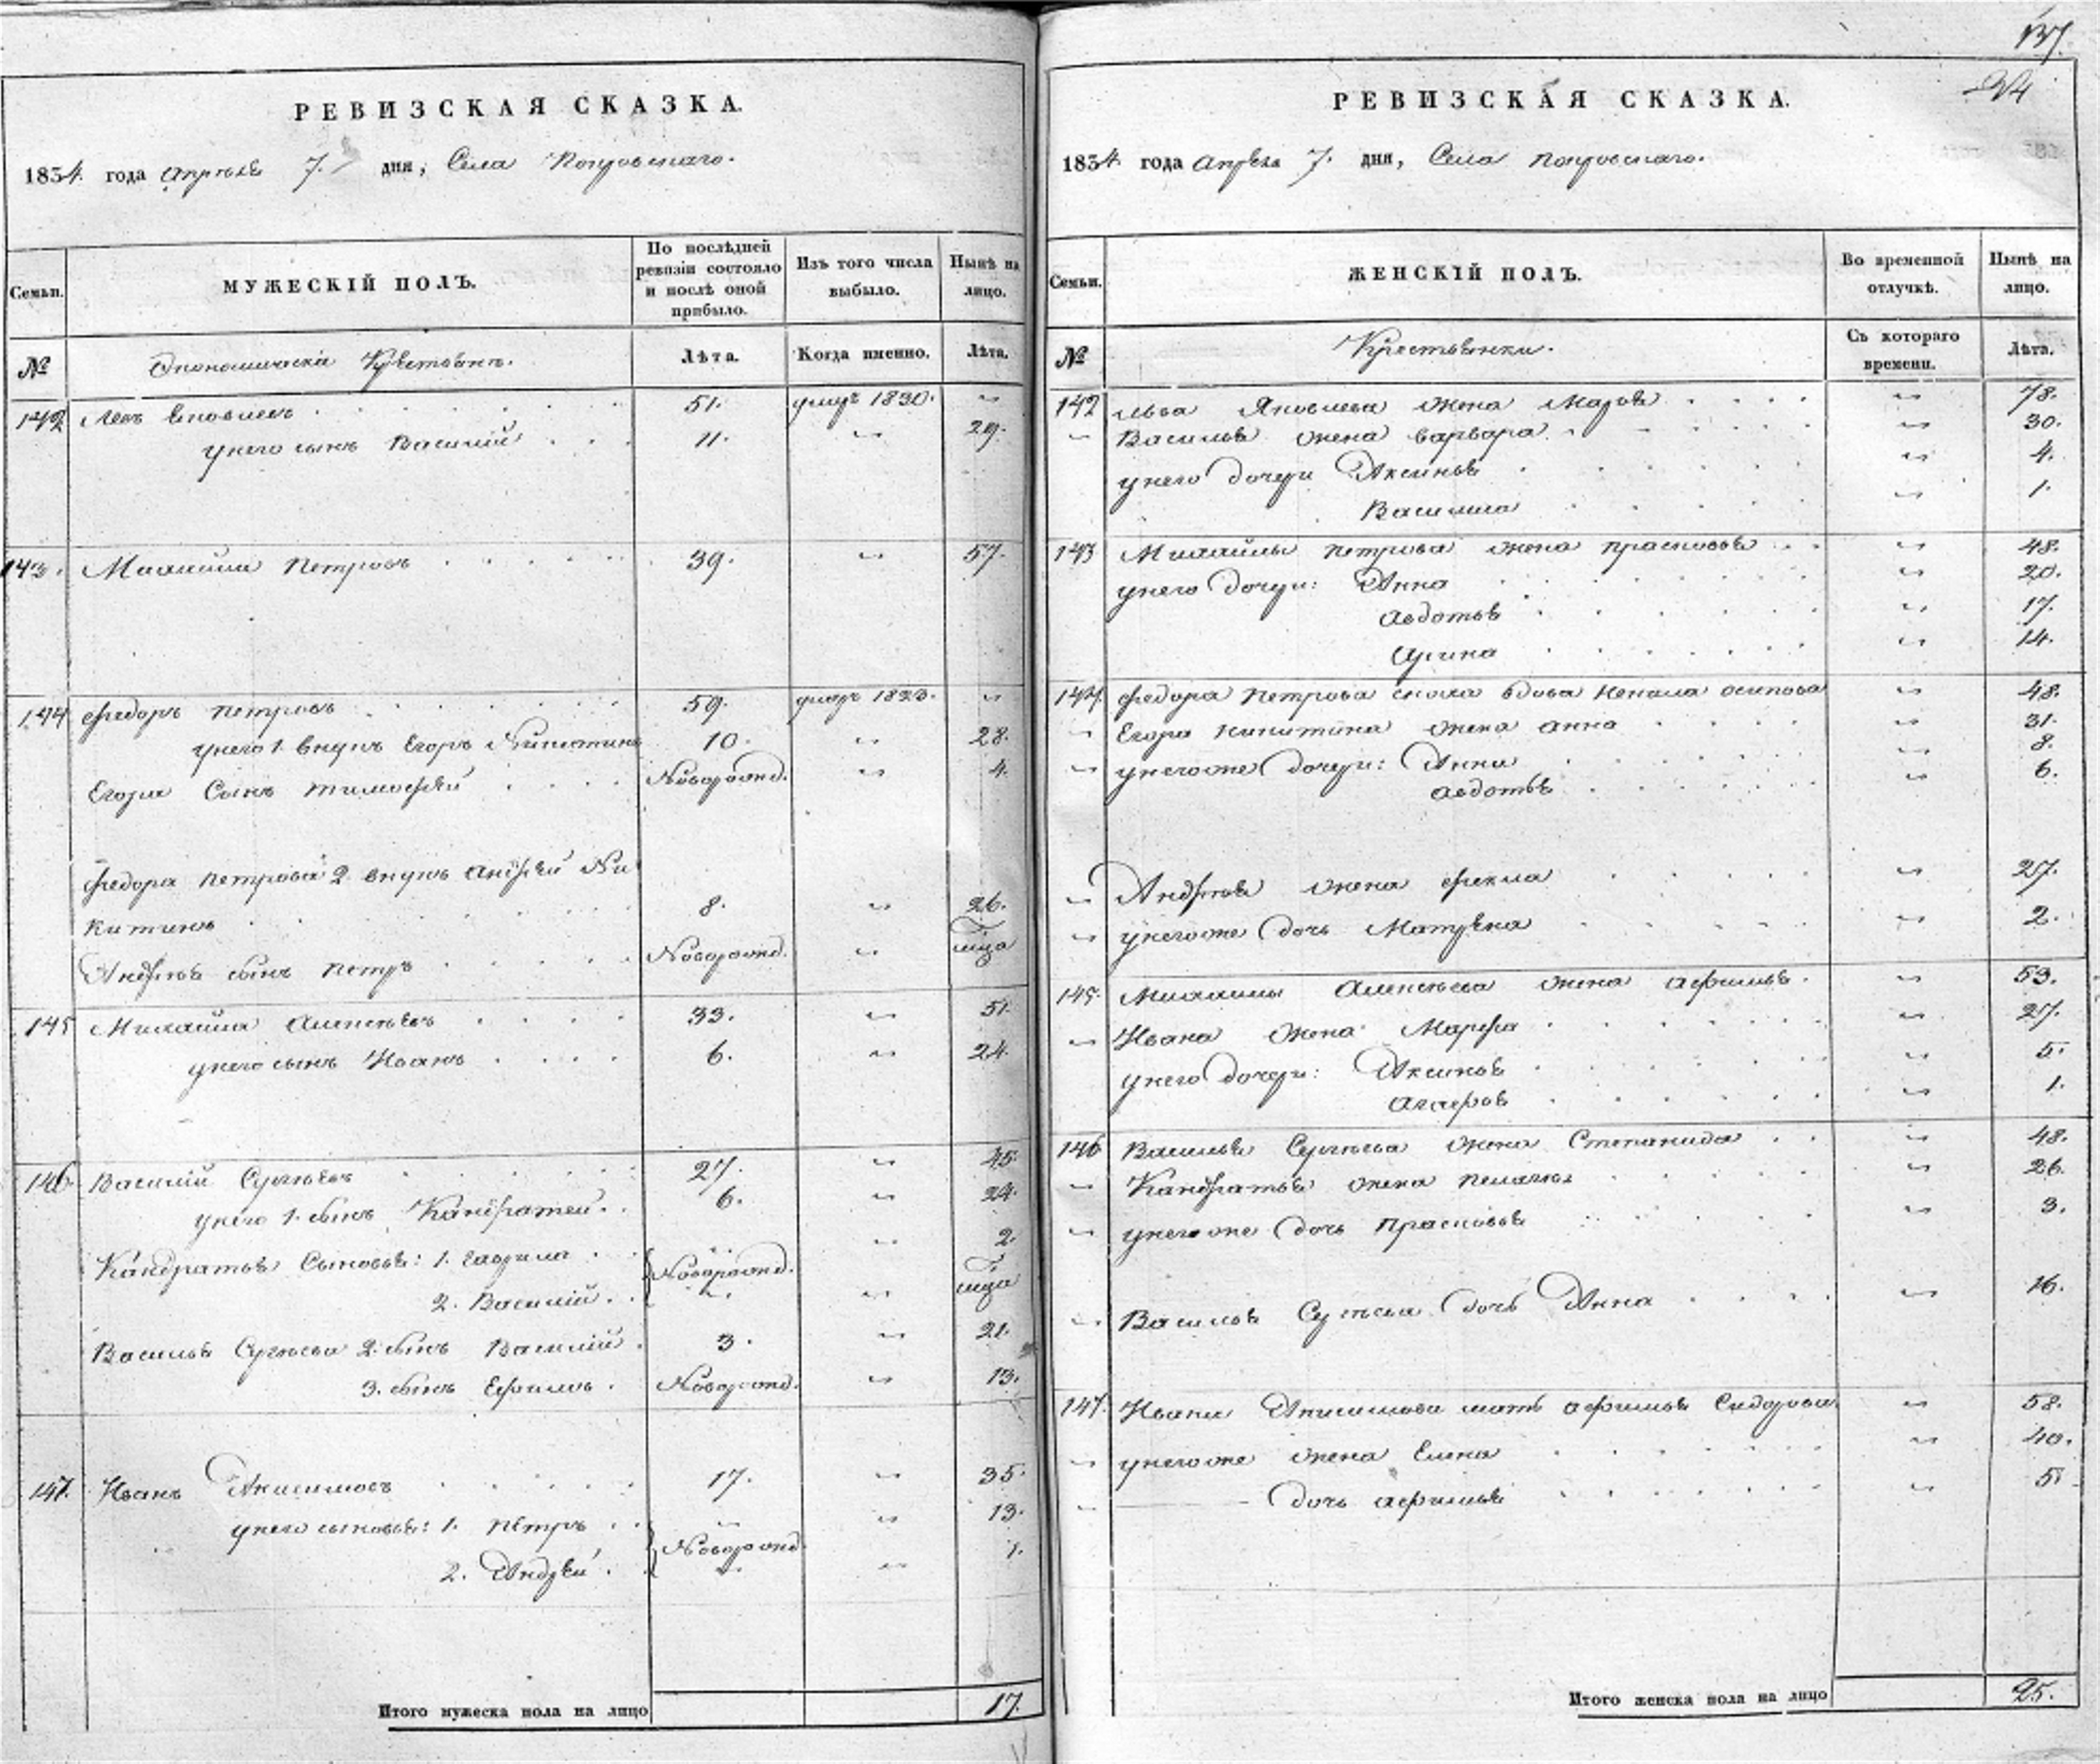 РЕВИЗСКАЯ СКАЗКА.
1834 года Апреля 7. дня, Села Покровскаго.
Семьи. МУЖЕСКІЙ ПОЛЪ. По послѣдней ревизіи состояло и послѣ оной прибыло. Изъ того числа выбыло. Нынѣ на лицо.
№ Экономическія Крестьянъ. Лѣта. Когда именно. Лѣта.
142 Левъ Яковлевъ 51. умре 1830. "
у него сынъ Василий 11. " 29.
143. Михайла Петровъ 39. " 57.
144 Федоръ Петровъ 59. умре 1823. "
у него 1. внукъ Егоръ Никитинъ 10. " 28.
Егора Сынъ Тимофей Новорожд. " 4.
Федора Петрова 2 внукъ Андрѣй Ни
китинъ 8. " 26.
Андрѣя сынъ Петръ Новорожд. "
145 Михайла Алексѣевъ 33. " 51.
у него сынъ Иванъ 6. " 24.
146 Василій Сергѣевъ 27. " 45.
у него 1. сынъ Кандратей 6. " 24.
Кандратья Сыновья: 1. Гаврила Новорожд. " 2.
2. Василій "
Василья Сергѣева 2. сынъ Василій 3. " 21.
3. сынъ Ефимъ Новорожд. " 13.
147. Иванъ Акисимовъ 17. " 35.
у него сыновья: 1. Петръ Новорожд. " 13.
2. Андрѣй " 1.
Итого мужеска пола на лицо 17.
137.
24
РЕВИЗСКАЯ СКАЗКА.
1834 года Апрѣля 7. дня, Села Покровскаго.
Семьи. ЖЕНСКІЙ ПОЛЪ. Во временной отлучкѣ. Нынѣ на лицо.
№ Крестьянки. Съ котораго времени. Лѣта.
142 Льва Яковлева жена Марѳа " 78.
" Василья жена Варвара " 30.
у него дочери Аксинья " 4.
Василиса " 1.
143 Михайлы Петрова жена Прасковья " 48.
у него дочери: Анна " 20.
Авдотья " 17.
Арина " 14.
144. Федора Петрова сноха вдова Ненила Осипова " 48.
" Егора Никитина жена Анна " 31.
" у него же дочери: Анна " 8.
Авдотья " 6.
" Андрѣя жена Фекла " 27.
" у него же дочь Матрѣна " 2.
145. Михайлы Алексѣева жена Афимья " 53.
" Ивана жена Марфа " 27.
у него дочери: Аксинья " 5.
" 1.
146 Василья Сергѣева жена Степанида " 48.
" Кандратья жена Пелагея " 26.
" у него же дочь Прасковья " 3.
" Василья Сергѣева дочь Анна " 16.
147. Ивана Акисимова мать Афимья Сидорова " 58.
" у него же жена Елена " 40.
" дочь Афимья " 5.
Итого женска пола на лицо 25.